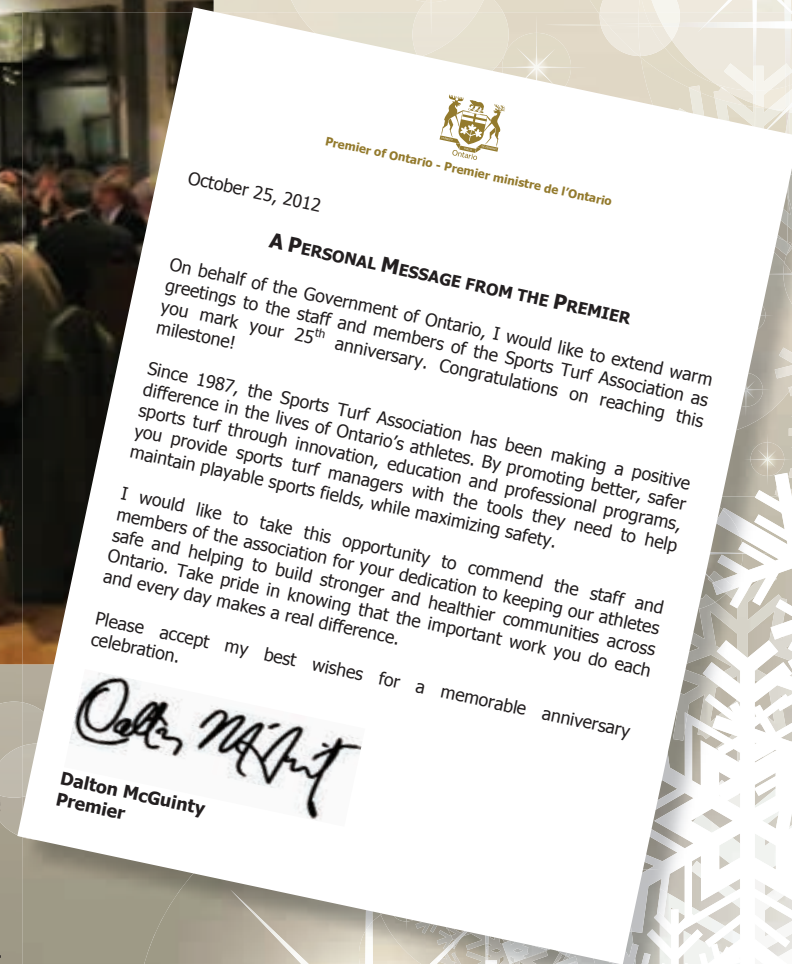 Ontario
Premier of Ontario - Premier ministre de l'Ontario
October 25, 2012
A PERSONAL MESSAGE FROM THE PREMIER
On behalf of the Government of Ontario, I would like to extend warm
greetings to the staff and members of the Sports Turf Association as
you mark your 25th anniversary. Congratulations on reaching this
milestone!
Since 1987, the Sports Turf Association has been making a positive
difference in the lives of Ontario's athletes. By promoting better, safer
sports turf through innovation, education and professional programs,
you provide sports turf managers with the tools they need to help
maintain playable sports fields, while maximizing safety.
I would like to take this opportunity to commend the staff and
members of the association for your dedication to keeping our athletes
safe and helping to build stronger and healthier communities across
Ontario. Take pride in knowing that the important work you do each
and every day makes a real difference.
Please accept my best wishes for a memorable anniversary
celebration.
Dalton McGuinty
Dalton McGuinty
Premier